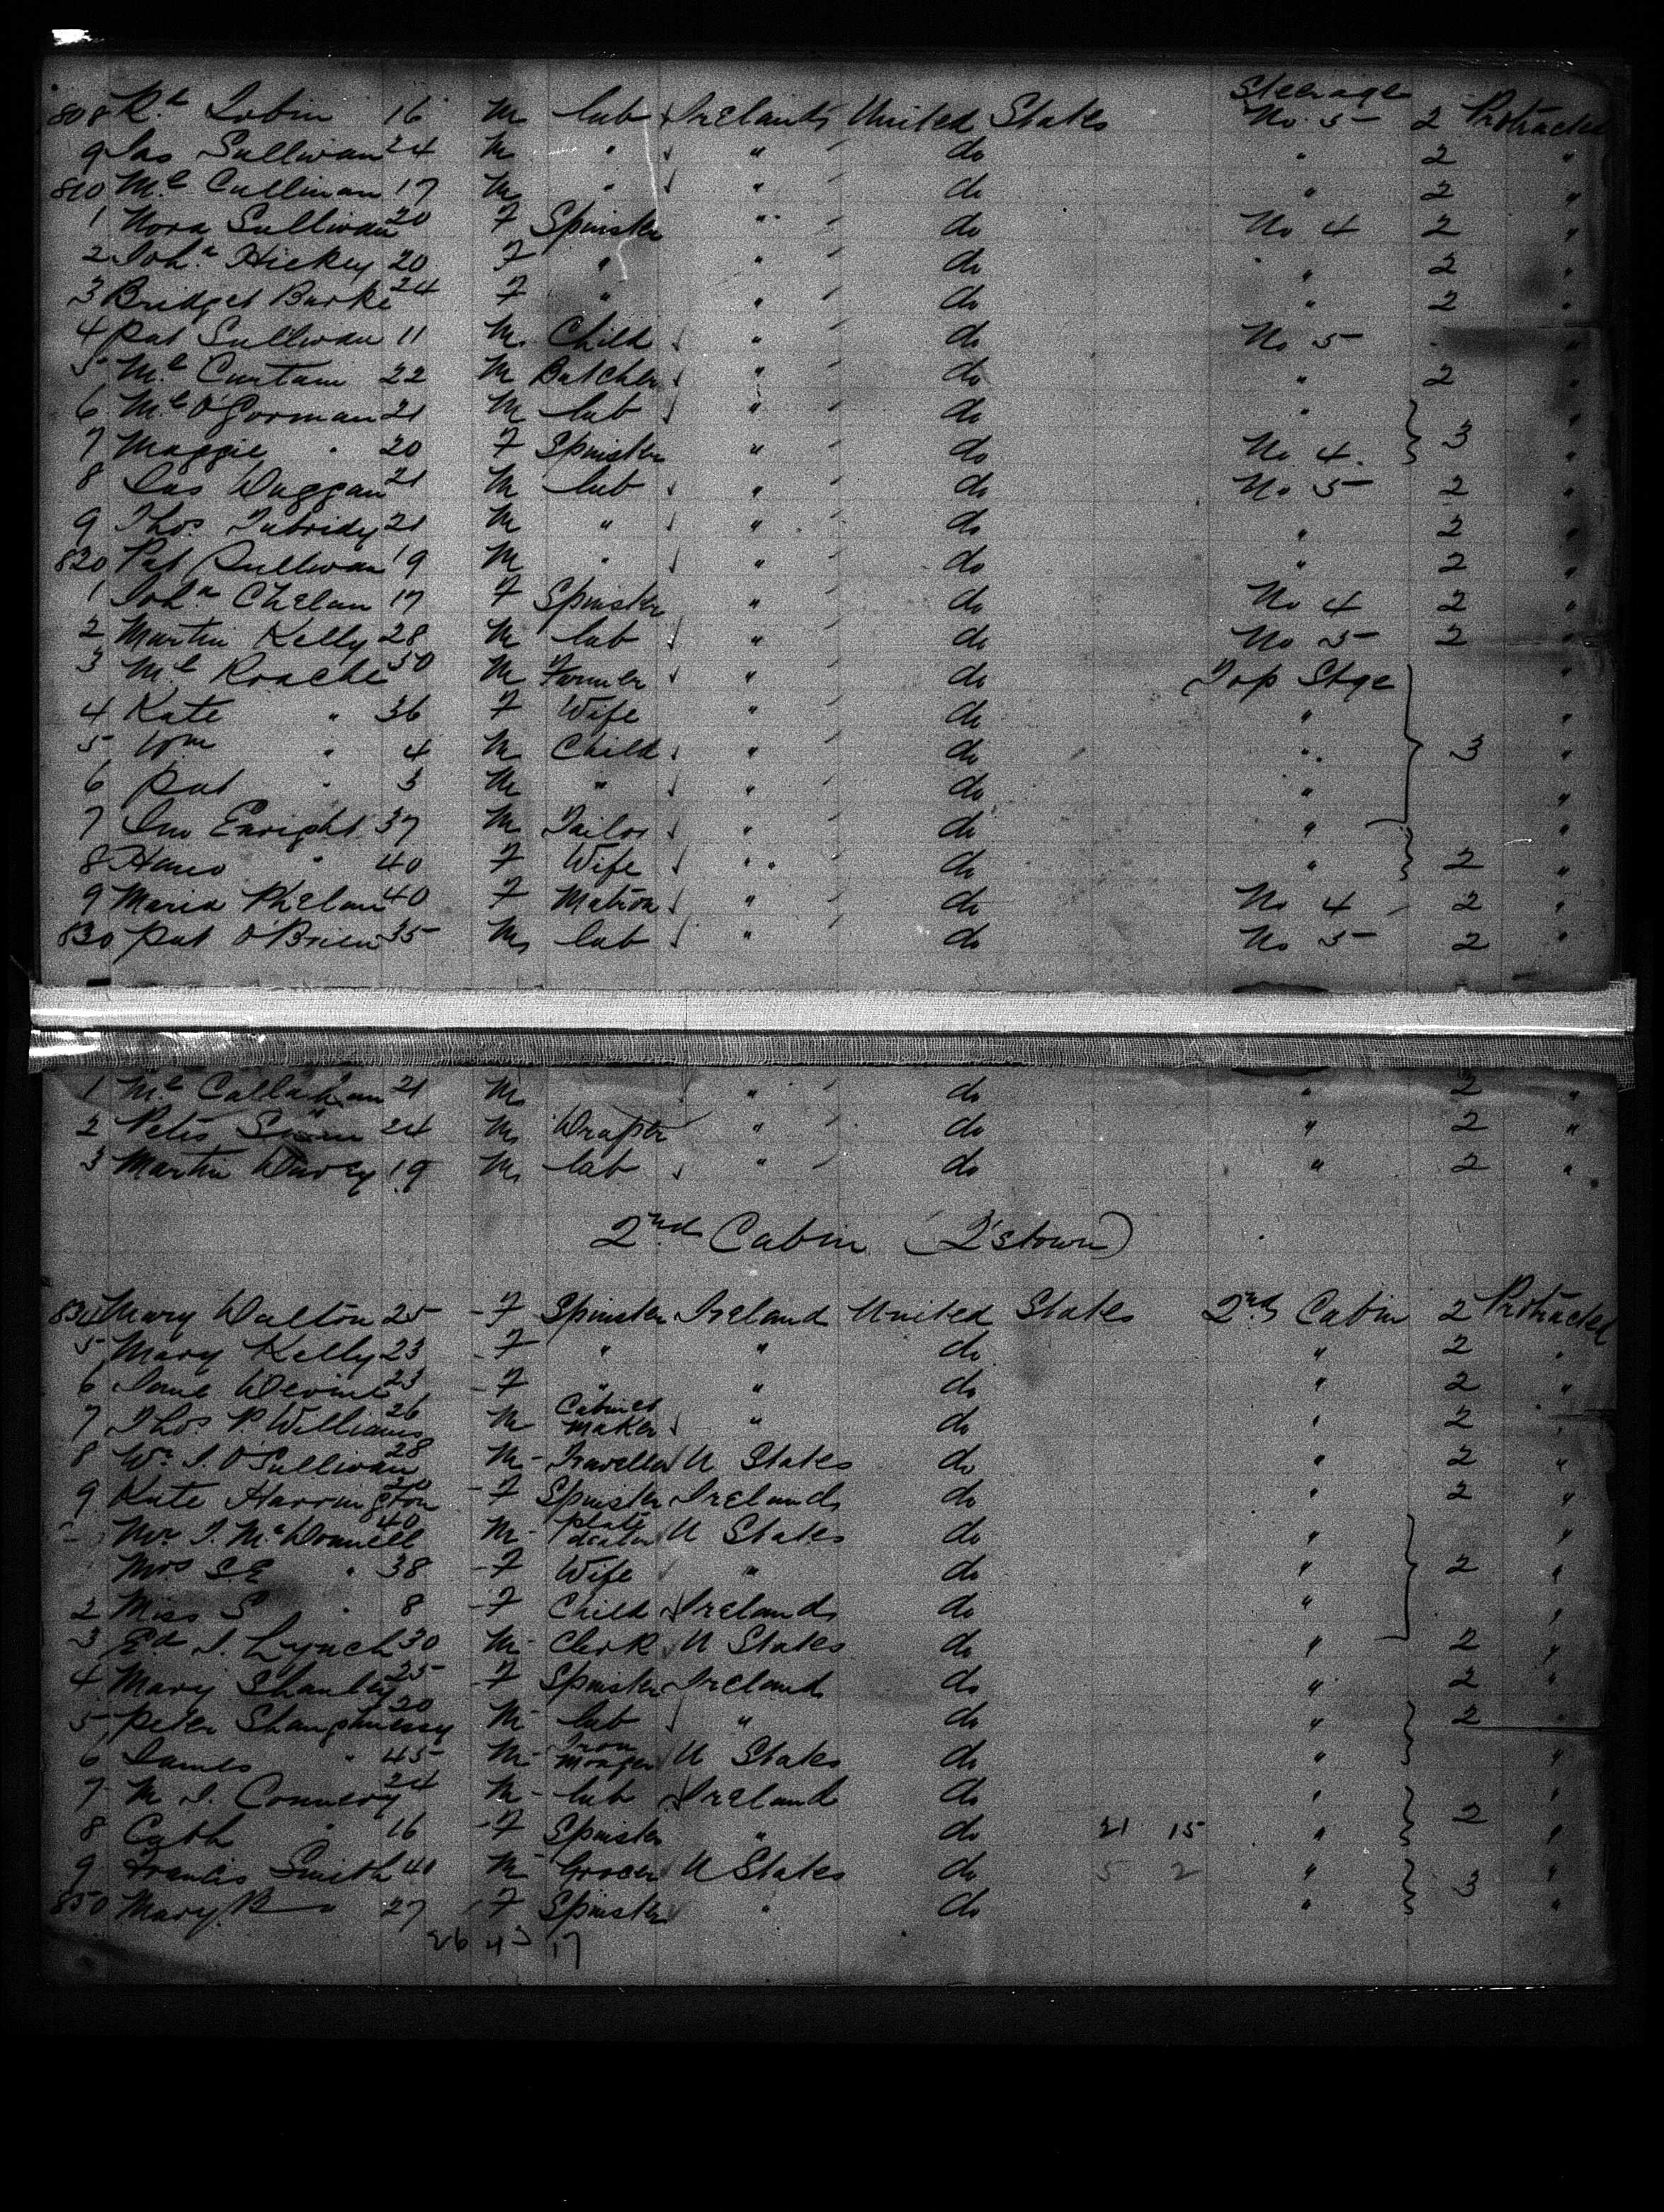 Steerage
808 Rd Tobin 16 M lab Ireland United States No 5 2 Protracted
9 Jas Sullivan 24 M " " do " 2 "
810 Ml Cullinan 17 M " " do " 2 "
1 Nora Sullivan 20 F Spinster " do No 4 2 "
2 Joha Hickey 20 F " " do " 2 "
3 Bridget Burke 24 F " " do " 2 "
4 Pat Sullivan 11 M Child " do No 5 "
5 Ml Curtain 22 M Butcher " do " 2 "
6 Ml O'Gorman 21 M lab " do " "
7 Maggie " 20 F Spinster " do No 4 3 "
8 Jas Duggan 21 M lab " do No 5 2 "
9 Thos Tubridy 21 M " " do " 2 "
820 Pat Sullivan 19 M " " do " 2 "
1 Joha Phelan 17 F Spinster " do No 4 2 "
2 Martin Kelly 28 M lab " do No 5 2 "
3 Ml Roache 50 M Farmer " do Top Stge "
4 Kate " 36 F Wife " do " "
5 Wm " 4 M Child " do " 3 "
6 Pat " 3 M " " do " "
7 Jno Enright 37 M Tailor " do " "
8 Hano " 40 F Wife " do " 2 "
9 Maria Phelan 40 F Matron " do No 4 2 "
830 Pat O'Brien 35 M lab " do No 5 2 "
1 Ml Callaghan 21 M " do " 2 "
2 Peter 24 M Draper " do " 2 "
3 Martin Davey 19 M lab " do " 2 "
2nd Cabin (Q'stown)
834 Mary Dalton 25 - F Spinster Ireland United States 2nd Cabin 2 Protracted
5 Mary Kelly 23 - F " " do " 2 "
6 Jane Devine 23 - F " " do " 2 "
7 Thos P. Williams 26 M Cabinet Maker " do " 2 "
8 Wm J. O'Sullivan 28 M - Traveller U States do " 2 "
9 Kate Harrington 20 - F Spinster Ireland do " 2 "
Mr J. McDonnell 40 M - U States do " "
Mrs S.E " 38 - F Wife " do " 2 "
2 Miss S " 8 - F Child Ireland do " "
3 Ed J. Lynch 30 M - Clerk U States do " 2 "
4 Mary Shanley 25 - F Spinster Ireland do " 2 "
5 Peter Shaughnessy 20 M - lab " do " 2 "
6 James " 45 M - Iron Monger U States do " "
7 M J. Connery 24 M - lab Ireland do " "
8 Cath " 16 - F Spinster " do 21 15 " 2 "
9 Francis Smith 40 M - Grocer U States do 5 2 " "
850 Mary B " 27 - F Spinster " do " 3 "
26 43 17